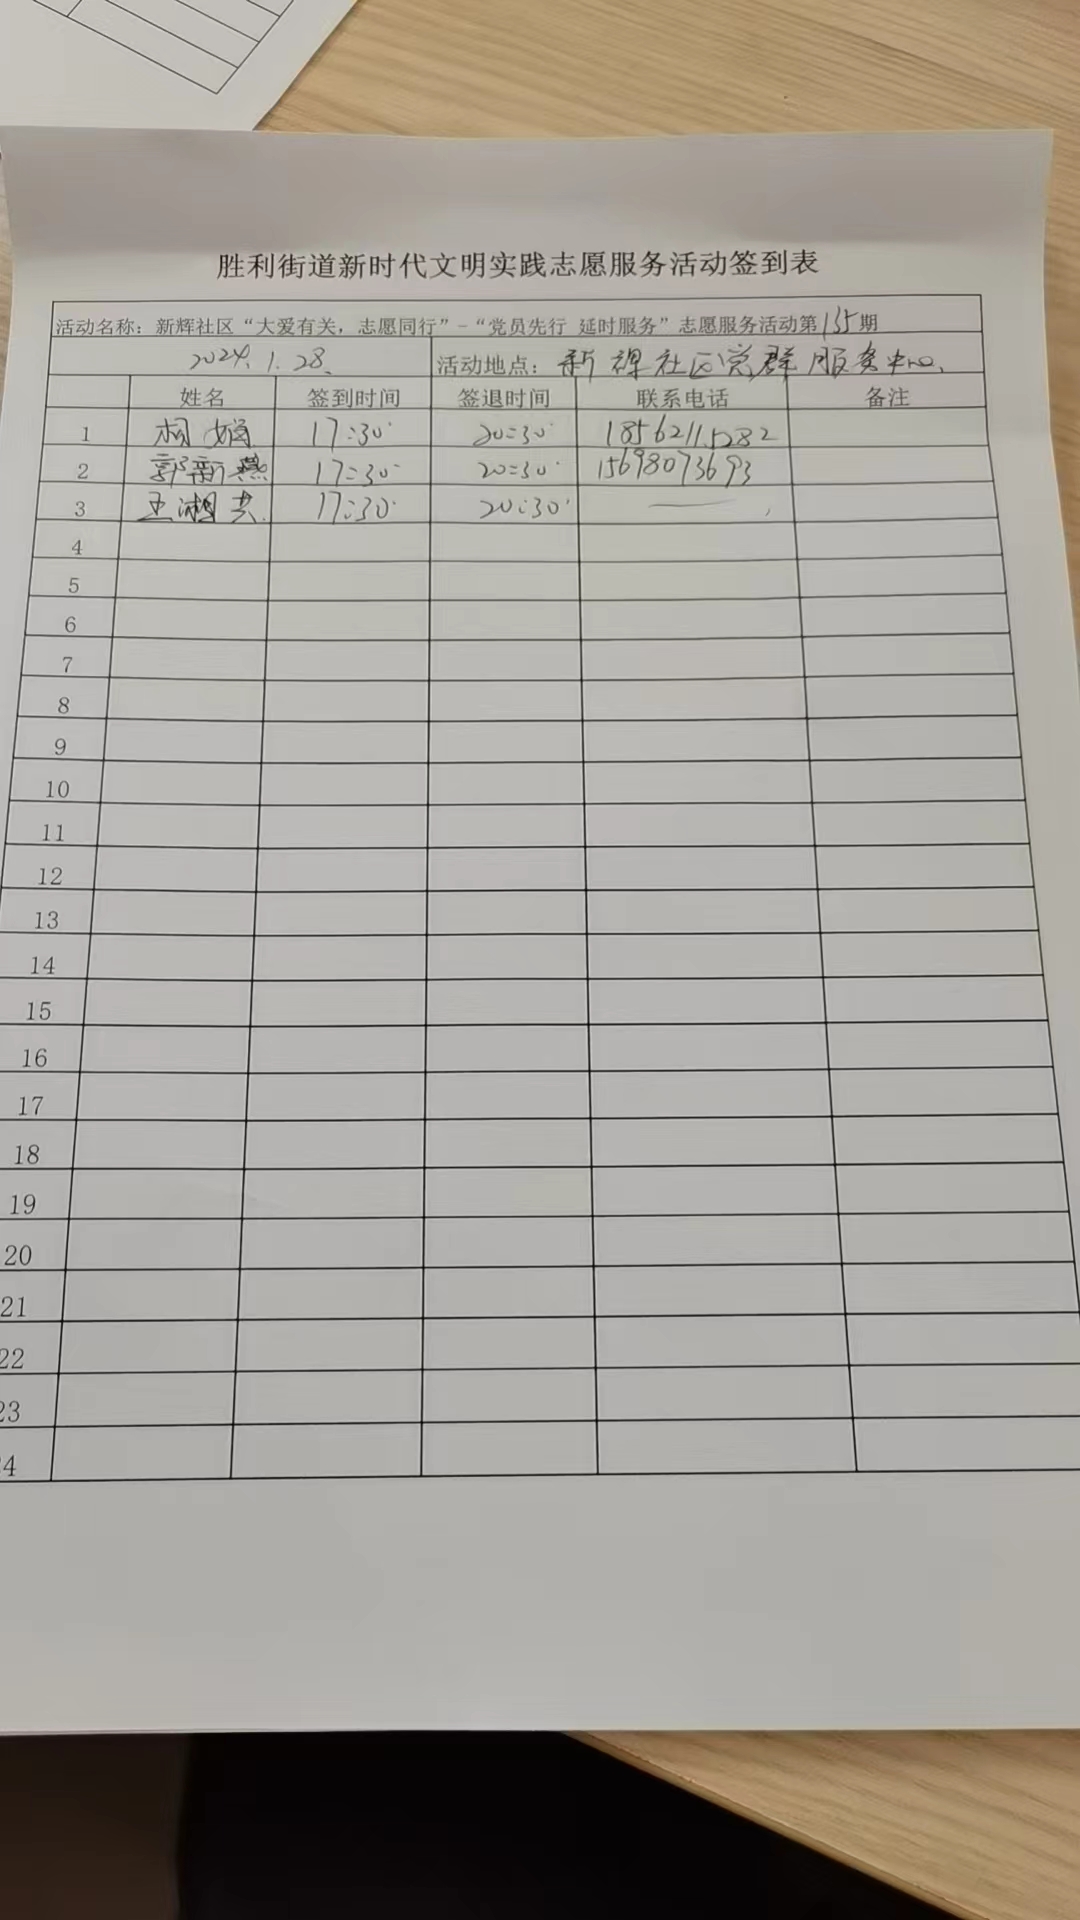 胜利街道新时代文明实践志愿服务活动签到表
活动名称：新辉社区“大爱有关，志愿同行”-“党员先行 延时服务”志愿服务活动第135期
2024.1.28. 活动地点：新辉社区党群服务中心.
姓名 签到时间 签退时间 联系电话 备注
1 17:30 20:30 18562115282
2 郭新燕 17:30 20:30 15698073693
3 王湘 17:30 20:30 —
4
5
6
7
8
9
10
11
12
13
14
15
16
17
18
19
20
21
22
23
4